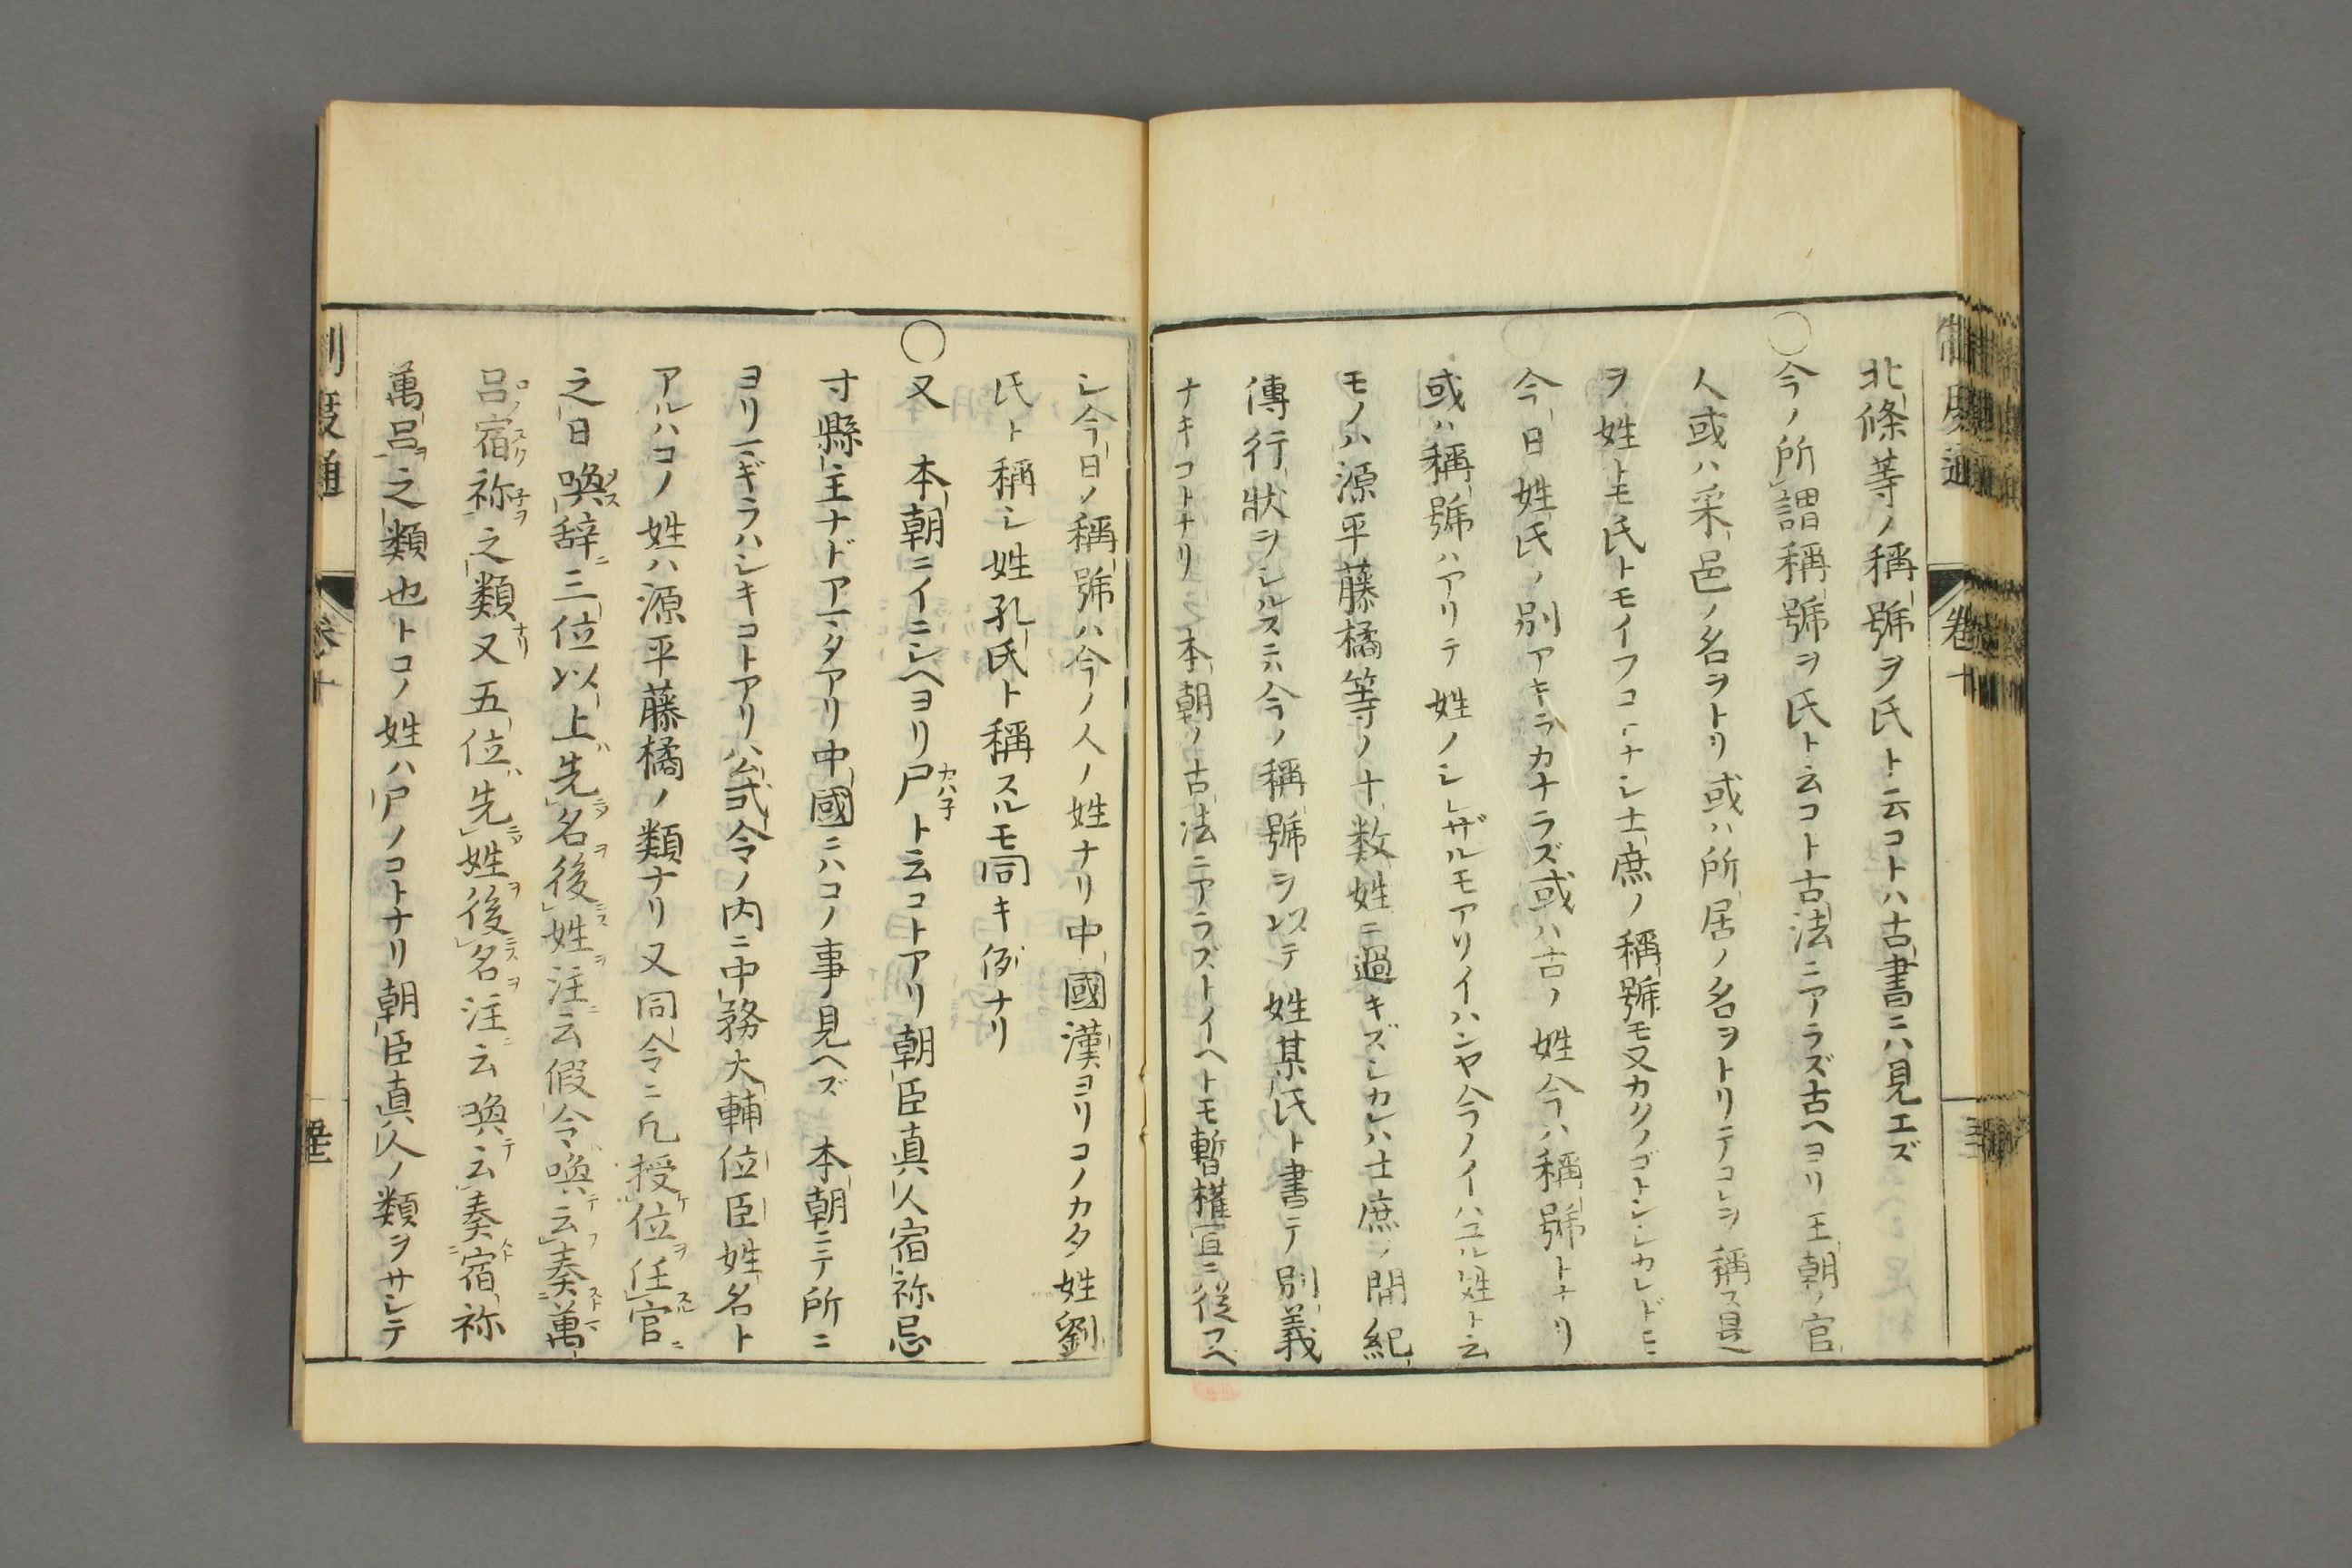 北條等ノ稱號ヲ氏ト云コトハ古書ニハ見エズ
○今ノ所謂稱號ヲ氏ト云コト古法ニアラズ古ヘヨリ王朝ノ官
人或ハ采邑ノ名ヲトリ或ハ所居ノ名ヲトリテコレヲ稱ス是
ヲ姓トモ氏トモイフコナシ士庶ノ稱號モ又カクノゴトシシカレドモ
今日姓氏ノ別アキラカナラズ或ハ古ノ姓今ハ稱號トナリ
或ハ稱號ハアリテ姓ノシレザルモアリイハンヤ今ノイハユル姓ト云
モノハ源平藤橘等ノ十数姓ニ過キズシカレハ士庶ノ開紀
傳行狀ヲシルスニハ今ノ稱號ヲ以テ姓某氏ト書テ別義
ナキコトナリ 本朝ノ古法ニアラズトイヘトモ暫權宜ニ從フヘ
シ今日ノ稱號ハ今ノ人ノ姓ナリ中國漢ヨリコノカタ姓劉
氏ト稱シ姓孔氏ト稱スルモ同キ例ナリ
○又 本朝ニイニシヘヨリ尸カバ子ト云コトアリ朝臣真人宿祢忌
寸縣主ナドアマタアリ中國ニハコノ事見ヘズ 本朝ニテ所ニ
ヨリマギラハシキコトアリ公式令ノ内ニ中務大輔位臣姓名ト
アルハコノ姓ハ源平藤橘ノ類ナリ又同令ニ凡授ケ位ヲ任スル官ニ
之日喚辞ニ三位以上ハ先ニシ名ヲ後ニス姓ヲ注ニ云假令喚テ云フ秦萬
呂宿祢之類ナリ又五位ハ先ニシ姓ヲ後ニス名ヲ注ニ云喚テ云秦宿祢
萬呂之類也トコノ姓ハ尸ノコトナリ朝臣真人ノ類ヲサシテ
制度通
卷十